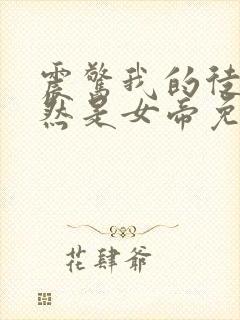 震惊我的徒
然是女帝免
花肆爷